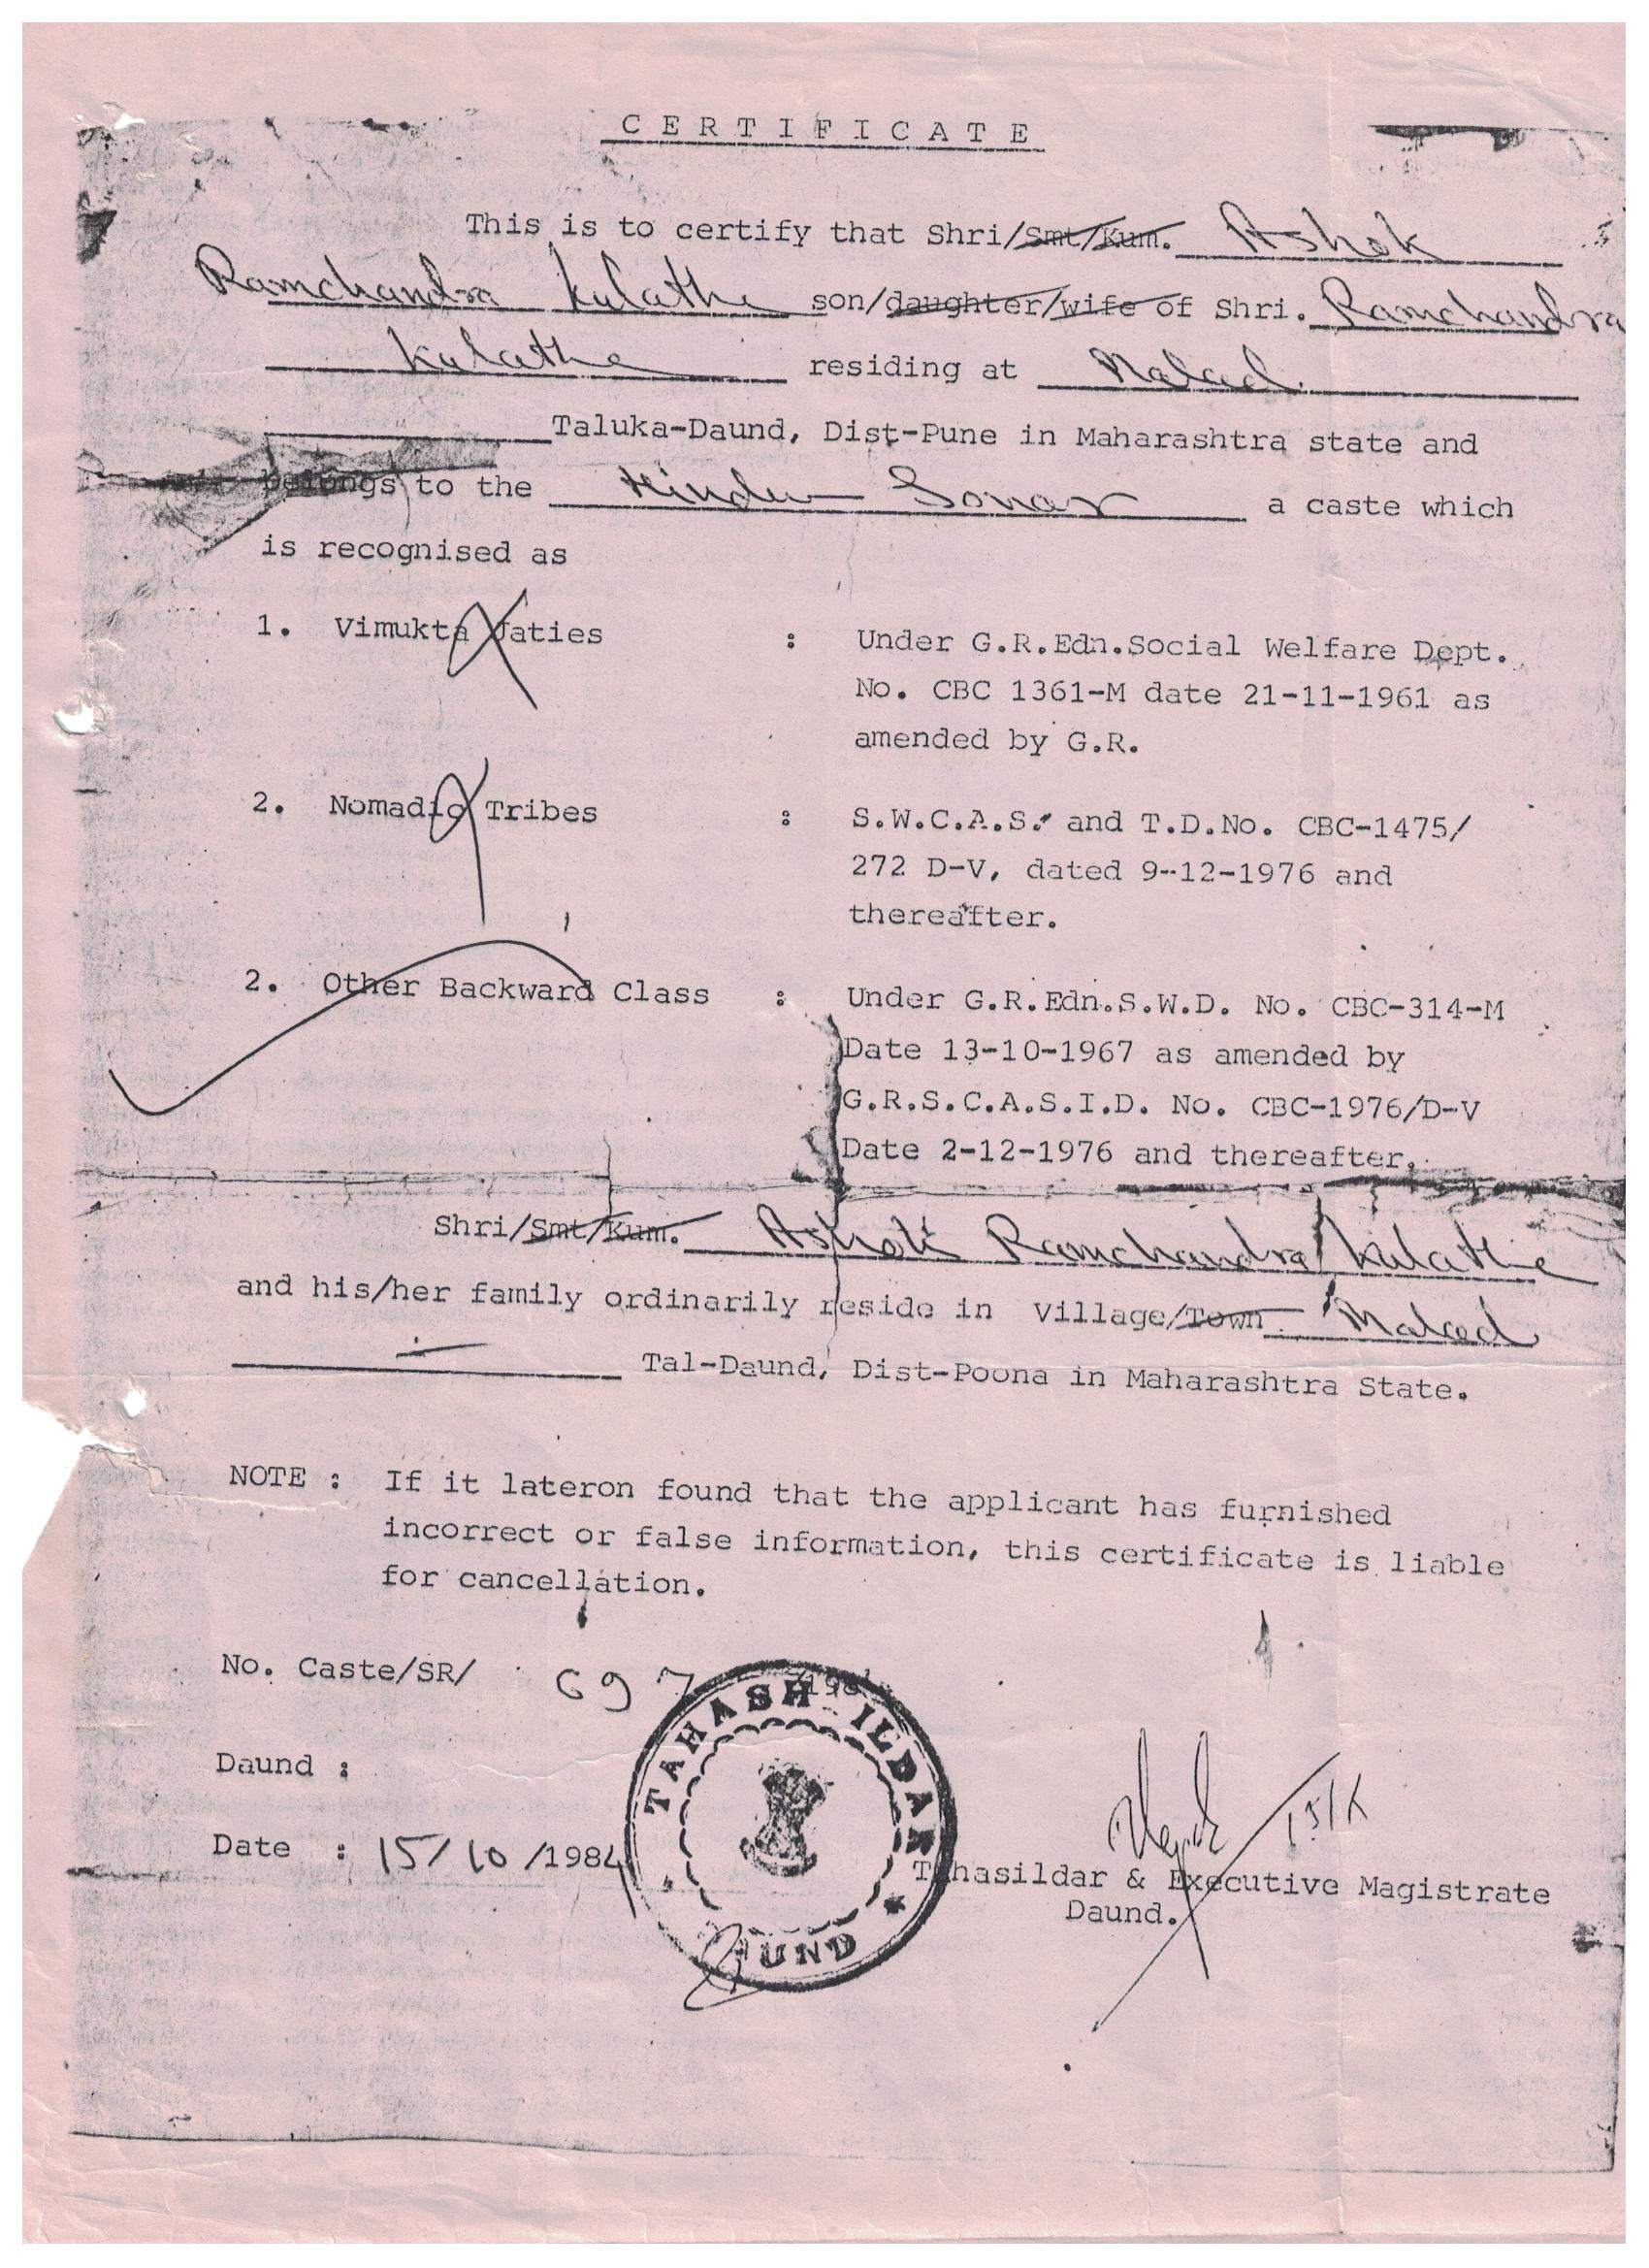 CERTIFICATE
This is to certify that Shri/Smt/Kum. Ashok
Ramchandra Kulathe son/daughter/wife of Shri. Ramchandra
Kulathe residing at Malad.
Taluka-Daund, Dist-Pune in Maharashtra state and
belongs to the Hindu Sonar a caste which
is recognised as
1. Vimukta Jaties : Under G.R.Edn.Social Welfare Dept.
No. CBC 1361-M date 21-11-1961 as
amended by G.R.
2. Nomadic Tribes : S.W.C.A.S. and T.D.No. CBC-1475/
272 D-V, dated 9-12-1976 and
thereafter.
2. Other Backward Class : Under G.R.Edn.S.W.D. No. CBC-314-M
Date 13-10-1967 as amended by
G.R.S.C.A.S.I.D. No. CBC-1976/D-V
Date 2-12-1976 and thereafter.
Shri/Smt/Kum. Ashok Ramchandra Kulathe
and his/her family ordinarily reside in Village/Town Malad
Tal-Daund, Dist-Poona in Maharashtra State.
NOTE : If it lateron found that the applicant has furnished
incorrect or false information, this certificate is liable
for cancellation.
No. Caste/SR/ 697 /198
TAHASHILDAR
UND
Daund :
Date : 15/10/1984
Tahasildar & Executive Magistrate
Daund.